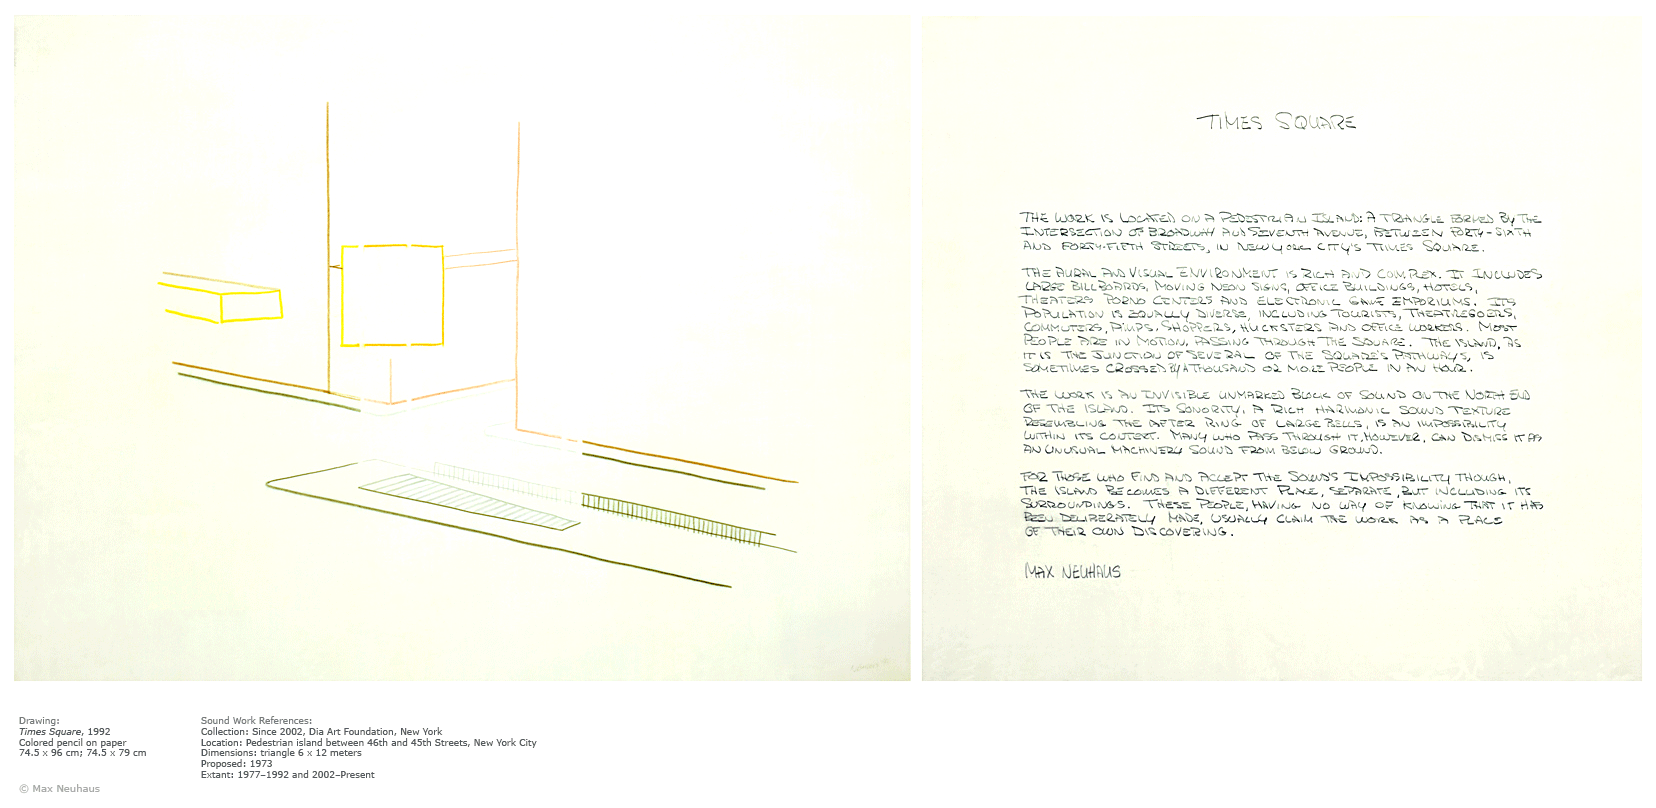 TIMES SQUARE
THE WORK IS LOCATED ON A PEDESTRIAN ISLAND: A TRIANGLE FORMED BY THE
INTERSECTION OF BROADWAY AND SEVENTH AVENUE, BETWEEN FORTY-SIXTH
AND FORTY-FIFTH STREETS, IN NEW YORK CITY'S TIMES SQUARE.
THE AURAL AND VISUAL ENVIRONMENT IS RICH AND COMPLEX. IT INCLUDES
LARGE BILLBOARDS, MOVING NEON SIGNS, OFFICE BUILDINGS, HOTELS,
THEATERS PORNO CENTERS AND ELECTRONIC GAME EMPORIUMS. ITS
POPULATION IS EQUALLY DIVERSE, INCLUDING TOURISTS, THEATREGOERS,
COMMUTERS, PIMPS, SHOPPERS, HUCKSTERS AND OFFICE WORKERS. MOST
PEOPLE ARE IN MOTION, PASSING THROUGH THE SQUARE. THE ISLAND, AS
IT IS THE JUNCTION OF SEVERAL OF THE SQUARE'S PATHWAYS, IS
SOMETIMES CROSSED BY A THOUSAND OR MORE PEOPLE IN AN HOUR.
THE WORK IS AN INVISIBLE UNMARKED BLOCK OF SOUND ON THE NORTH END
OF THE ISLAND. ITS SONORITY, A RICH HARMONIC SOUND TEXTURE
RESEMBLING THE AFTER RING OF LARGE BELLS, IS AN IMPOSSIBILITY
WITHIN ITS CONTEXT. MANY WHO PASS THROUGH IT, HOWEVER, CAN DISMISS IT AS
AN UNUSUAL MACHINERY SOUND FROM BELOW GROUND.
FOR THOSE WHO FIND AND ACCEPT THE SOUND'S IMPOSSIBILITY THOUGH,
THE ISLAND BECOMES A DIFFERENT PLACE, SEPARATE, BUT INCLUDING ITS
SURROUNDINGS. THESE PEOPLE, HAVING NO WAY OF KNOWING THAT IT HAS
BEEN DELIBERATELY MADE, USUALLY CLAIM THE WORK AS A PLACE
OF THEIR OWN DISCOVERING.
MAX NEUHAUS
Drawing:
Times Square, 1992
Colored pencil on paper
74.5 x 96 cm; 74.5 x 79 cm
© Max Neuhaus
Sound Work References:
Collection: Since 2002, Dia Art Foundation, New York
Location: Pedestrian island between 46th and 45th Streets, New York City
Dimensions: triangle 6 x 12 meters
Proposed: 1973
Extant: 1977–1992 and 2002–Present